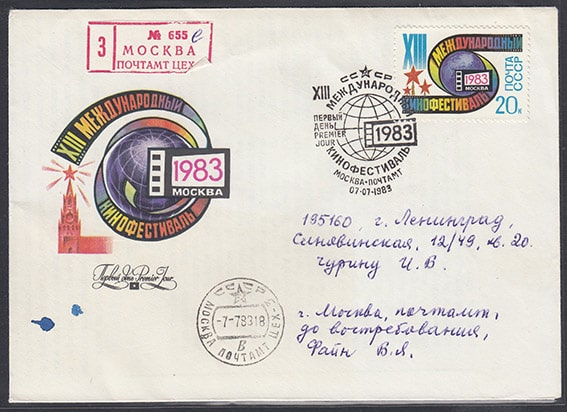 № 655 е
З МОСКВА
ПОЧТАМТ ЦЕХ
XIII МЕЖДУНАРОДНЫЙ
КИНОФЕСТИВАЛЬ
1983
МОСКВА
ПОЧТА
СССР
20к
СССР
XIII МЕЖДУНАРОДНЫЙ
ПЕРВЫЙ
ДЕНЬ
PREMIER
JOUR
1983
КИНОФЕСТИВАЛЬ
МОСКВА•ПОЧТАМТ
07-07-1983
XIII МЕЖДУНАРОДНЫЙ
1983
МОСКВА
КИНОФЕСТИВАЛЬ
Первый день Premier Jour
195160, г. Ленинград,
Синявинская, 12/49, кв. 20.
Чурину И. В.
СССР
МОСКВА ПОЧТАМТ ЦЕХ-3
-7-78318
В
г. Москва, почтамт,
до востребования,
Файн В.Я.